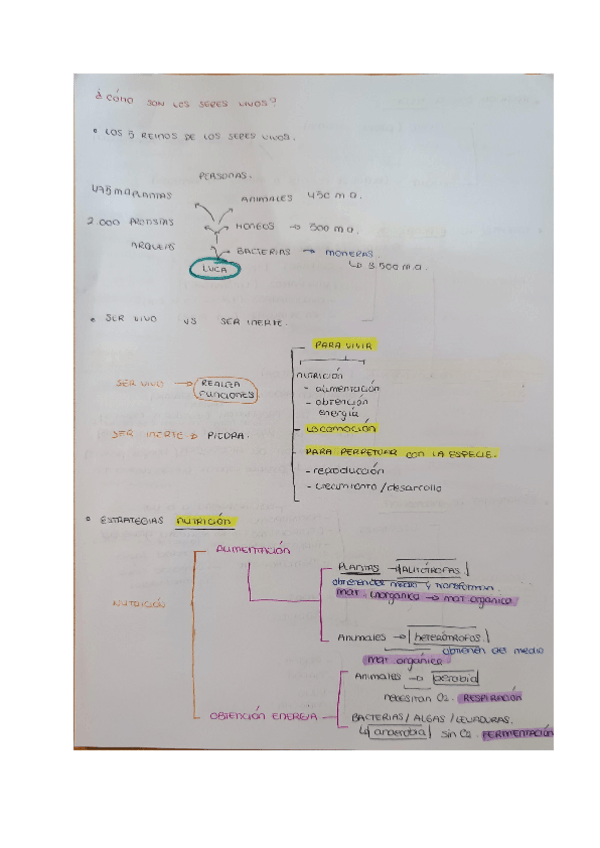 ¿CÓMO SON LOS SERES VIVOS?
• LOS 5 REINOS DE LOS SERES VIVOS.
PERSONAS.
475 m.a PLANTAS
ANIMALES 450 m.a.
2.000 PROTISTAS
HONGOS → 500 m.a.
ARQUEAS
BACTERIAS → MONERAS.
↳ 3.500 m.a.
LUCA
• SER VIVO VS SER INERTE.
PARA VIVIR
NUTRICIÓN
SER VIVO → REALIZA FUNCIONES
- alimentación
- obtención energía
SER INERTE → PIEDRA.
- LOCOMOCIÓN
- PARA PERPETUAR CON LA ESPECIE.
- reproducción
- crecimiento/desarrollo
• ESTRATEGIAS NUTRICIÓN
ALIMENTACIÓN
PLANTAS → AUTÓTROFAS.
obtienen del medio y transforman
mat. inorgánica → mat orgánica
NUTRICIÓN
Animales → heterótrofos.
obtienen del medio
mat orgánica
ANIMALES → aerobia
necesitan O2. RESPIRACIÓN
OBTENCIÓN ENERGÍA
BACTERIAS/ALGAS/LEVADURAS.
↳ anaerobia sin O2. FERMENTACIÓN